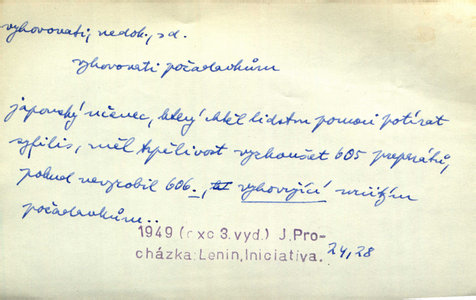 vyhovovati, nedok., sd.
vyhovovati požadavkům
japonský učenec, který chtěl lidstvu pomoci potírat
syfilis, měl trpělivost vyzkoušet 605 preparátů,
pokud nevyrobil 606., vyhovující určitým
požadavkům..
1949 (exc 3. vyd.) J.Pro-
cházka:Lenin,Iniciativa. 24,28